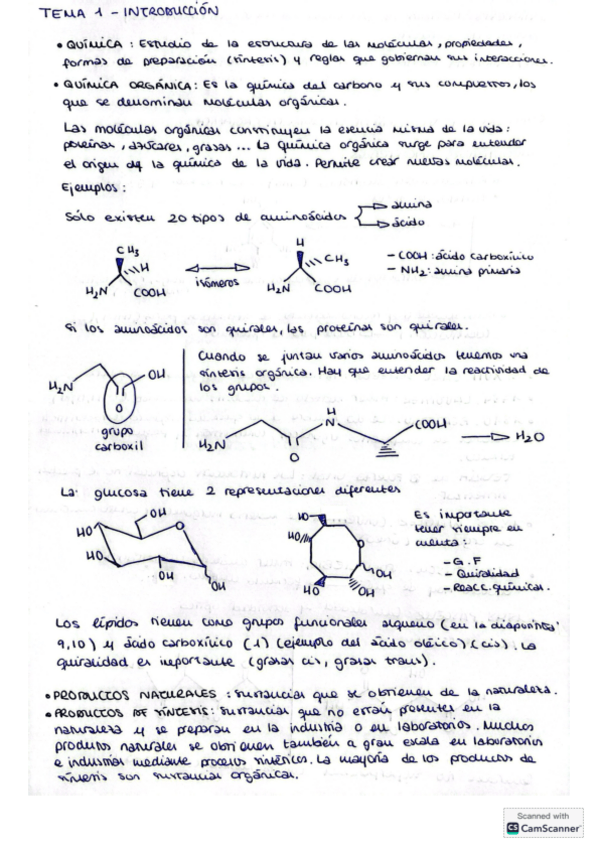 TEMA 1 - INTRODUCCIÓN
• QUÍMICA: Estudio de la estructura de las moléculas, propiedades,
formas de preparación (síntesis) y reglas que gobiernan sus interacciones.
• QUÍMICA ORGÁNICA: Es la química del carbono y sus compuestos, los
que se denominan moléculas orgánicas.
Las moléculas orgánicas constituyen la esencia misma de la vida:
proteínas, azúcares, grasas... La química orgánica surge para entender
el origen de la química de la vida. Permite crear nuevas moléculas.
Ejemplos:
Sólo existen 20 tipos de aminoácidos
amina
ácido
CH3
H
H2N
COOH
isómeros
H
CH3
H2N
COOH
- COOH: ácido carboxílico
- NH2: amina primaria
Si los aminoácidos son quirales, las proteínas son quirales.
H2N
OH
O
grupo
carboxil
Cuando se juntan varios aminoácidos tenemos una
síntesis orgánica. Hay que entender la reactividad de
los grupos.
H2N
O
H
N
COOH
H2O
La glucosa tiene 2 representaciones diferentes
OH
HO
O
HO
OH
OH
HO
HO
O
OH
HO
OH
Es importante
tener siempre en
cuenta:
- G.F
- Quiralidad
- Reacc. químicas.
Los lípidos tienen como grupos funcionales alqueno (en la diapositiva
9,10) y ácido carboxílico (1) (ejemplo del ácido oléico) (cis). La
quiralidad es importante (grasas cis, grasas trans).
• PRODUCTOS NATURALES: sustancias que se obtienen de la naturaleza.
• PRODUCTOS DE SÍNTESIS: sustancias que no están presentes en la
naturaleza y se preparan en la industria o en laboratorios. Muchos
productos naturales se obtienen también a gran escala en laboratorios
e industrias mediante procesos sintéticos. La mayoría de los productos de
síntesis son sustancias orgánicas.
Scanned with
CS CamScanner